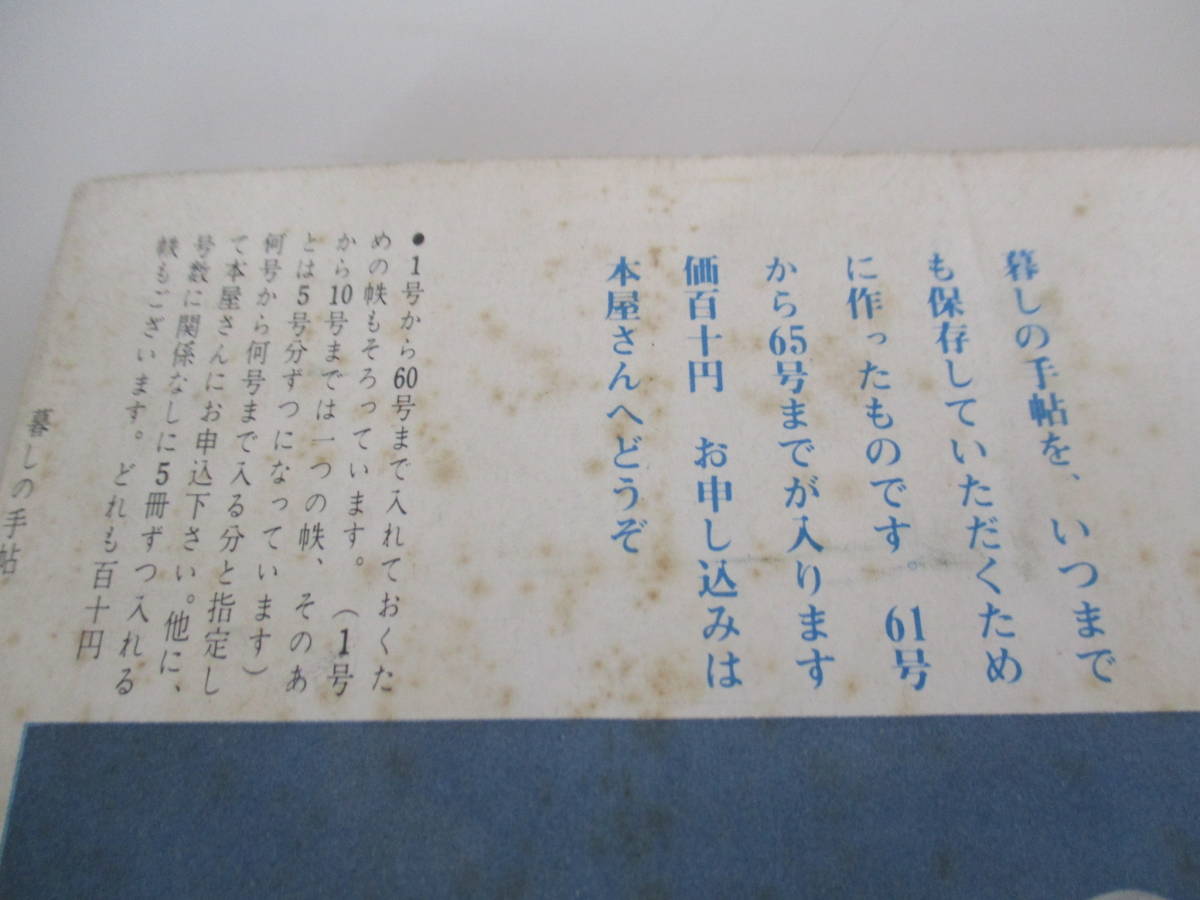 暮しの手帖を、いつまで
も保存していただくため
に作ったものです。61号
から65号までが入ります
価百十円　お申し込みは
本屋さんへどうぞ
●1号から60号まで入れておくた
めの帙もそろっています。（1号
から10号までは一つの帙、そのあ
とは5号分ずつになっています）
何号から何号まで入る分と指定し
て本屋さんにお申込下さい。他に、
号数に関係なしに5冊ずつ入れる
帙もございます。どれも百十円
暮しの手帖